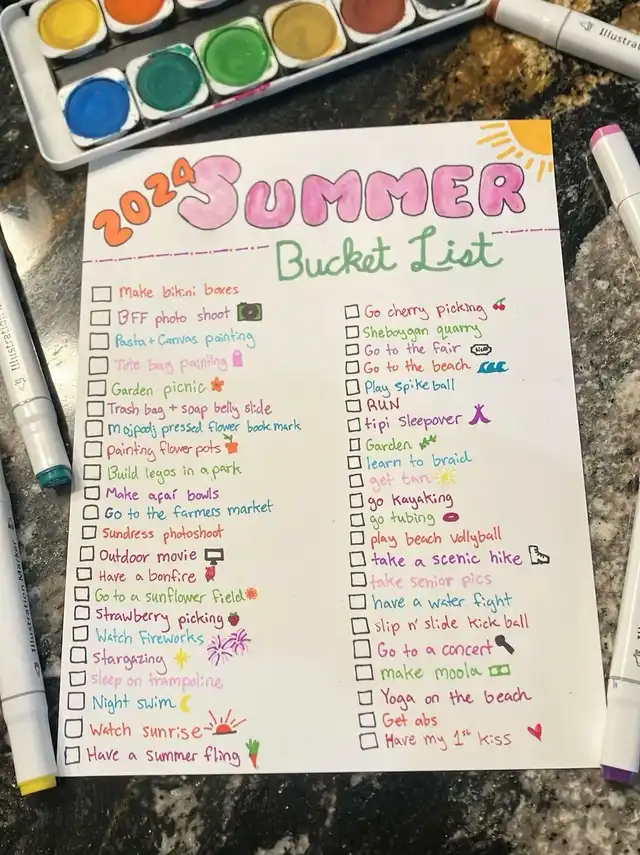 2024 SUMMER
Bucket List
Make bikini boxes
BFF photo shoot
Pasta + Canvas painting
Tote bag painting
Garden picnic
Trash bag + soap belly slide
pressed flower book mark
Painting flower pots
Build legos in a park
Make açaí bowls
Go to the farmers market
Sundress photoshoot
Outdoor movie
Have a bonfire
Go to a sunflower field
Strawberry picking
Watch Fireworks
Stargazing
Sleep on trampoline
Night swim
Watch sunrise
Have a summer fling
Go cherry picking
Sheboygan quarry
Go to the fair
Go to the beach
Play spikeball
RUN
tipi sleepover
Garden
learn to braid
get tan
go kayaking
go tubing
play beach vollyball
take a scenic hike
take senior pics
have a water fight
slip n' slide kick ball
Go to a concert
make moola
Yoga on the beach
Get abs
Have my 1st kiss
Illustration Marker